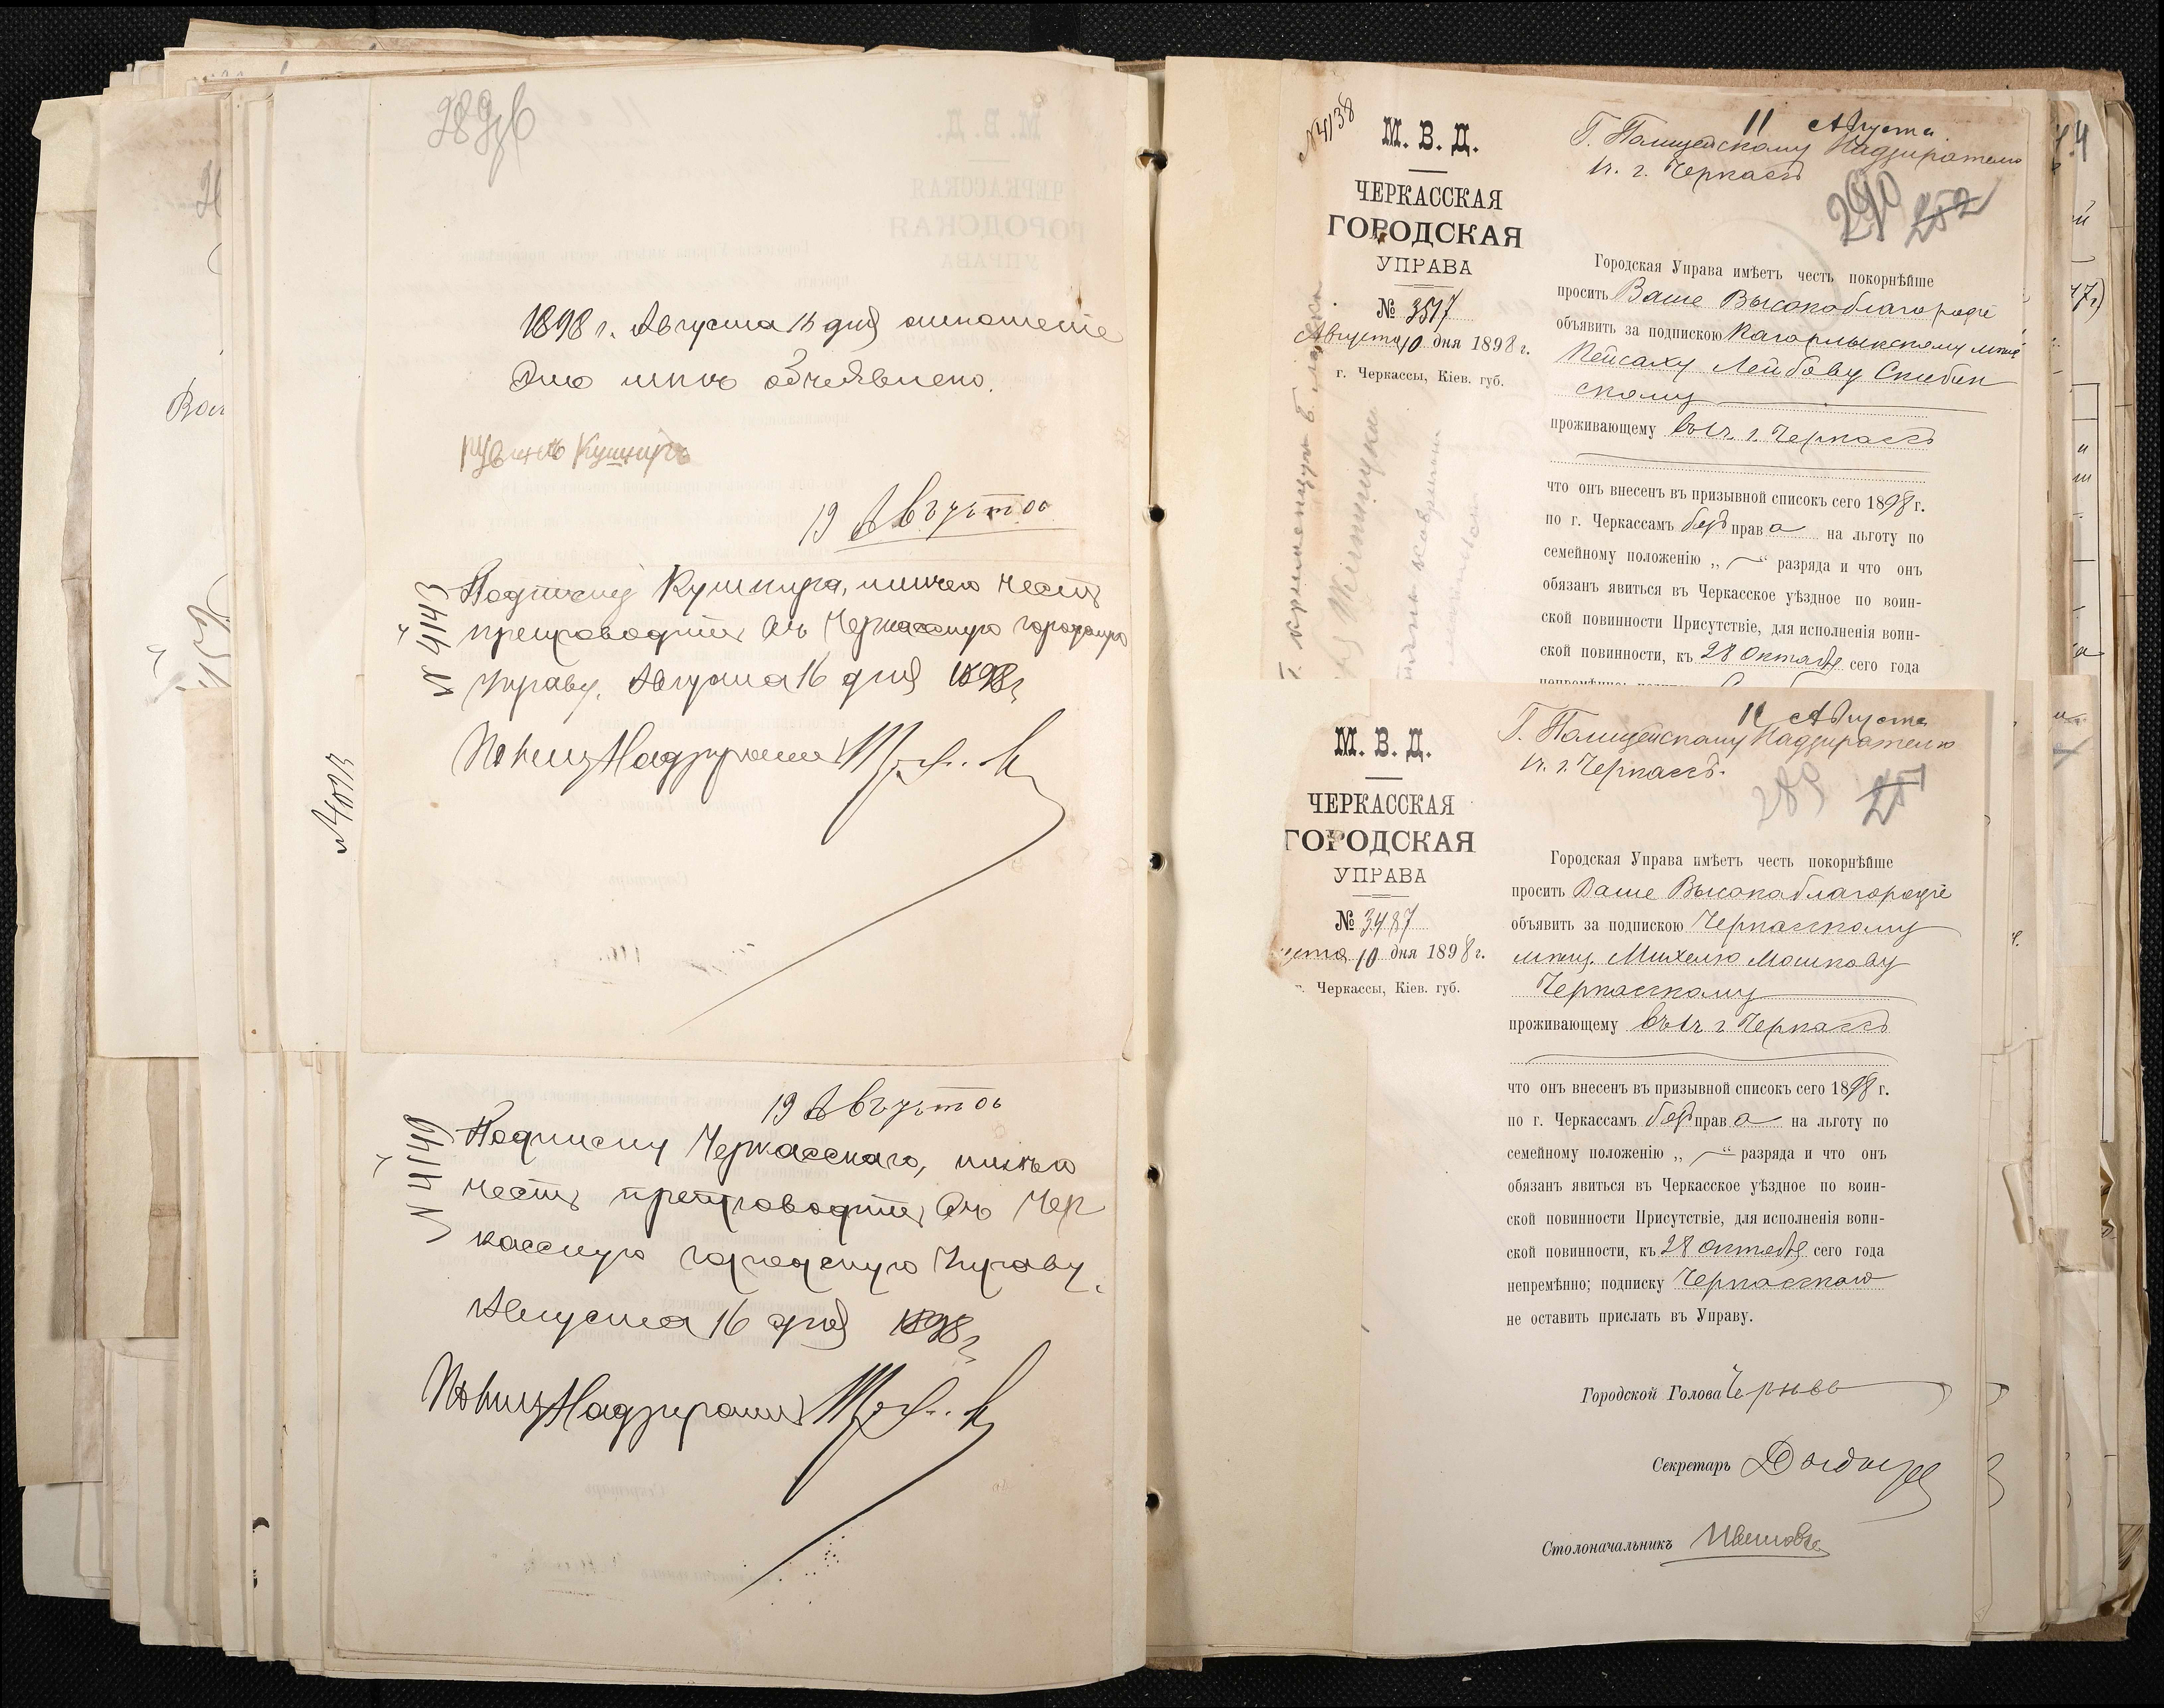 289 об
1898 г. Августа 15 дня отношение
Это мне объявлено.
Кушниръ
19 Августа
№ 4143
Подписку Кушнира, имею честь
препроводить въ Черкасскую городскую
Управу. Августа 16 дня 1898 г.
Полиц Надзиратель
19 Августа
№ 4149
Подписку Черкасскаго, имею
честь препроводить въ Чер
касскую городскую Управу.
Августа 16 дня 1898 г
Полиц Надзиратель
№ 4138
М. В. Д.
ЧЕРКАССКАЯ
ГОРОДСКАЯ
УПРАВА
№ 3517
Августа 10 дня 1898 г.
г. Черкассы, Кіев. губ.
11 Августа
Г. Полицейскому Надзирателю
въ г. Черкассъ
290 252
Городская Управа имѣетъ честь покорнѣйше
просить Ваше Высокоблагородіе
объявить за подпискою Кагарлыкскому мѣщ
Пейсаху Лейбову Скибин
скому
проживающему въ г. Черкассъ
что онъ внесенъ въ призывной списокъ сего 1898 г.
по г. Черкассамъ безъ права на льготу по
семейному положенію „ — “ разряда и что онъ
обязанъ явиться въ Черкасское уѣздное по воин-
ской повинности Присутствіе, для исполненія воин-
ской повинности, къ 28 Октября сего года
М. В. Д.
ЧЕРКАССКАЯ
ГОРОДСКАЯ
УПРАВА
№ 3487
уста 10 дня 1898 г.
г. Черкассы, Кіев. губ.
11 Августа
Г. Полицейскому Надзирателю
въ г. Черкассъ.
289 251
Городская Управа имѣетъ честь покорнѣйше
просить Ваше Высокоблагородіе
объявить за подпискою Черкасскому
мѣщ. Михелю Мошкову
Черкасскому
проживающему въ г Черкассъ
что онъ внесенъ въ призывной списокъ сего 1898 г.
по г. Черкассамъ безъ права на льготу по
семейному положенію „ — “ разряда и что онъ
обязанъ явиться въ Черкасское уѣздное по воин-
ской повинности Присутствіе, для исполненія воин-
ской повинности, къ 28 Октября сего года
непремѣнно; подписку Черкасскаго
не оставить прислать въ Управу.
Городской Голова
Секретарь
Столоначальникъ